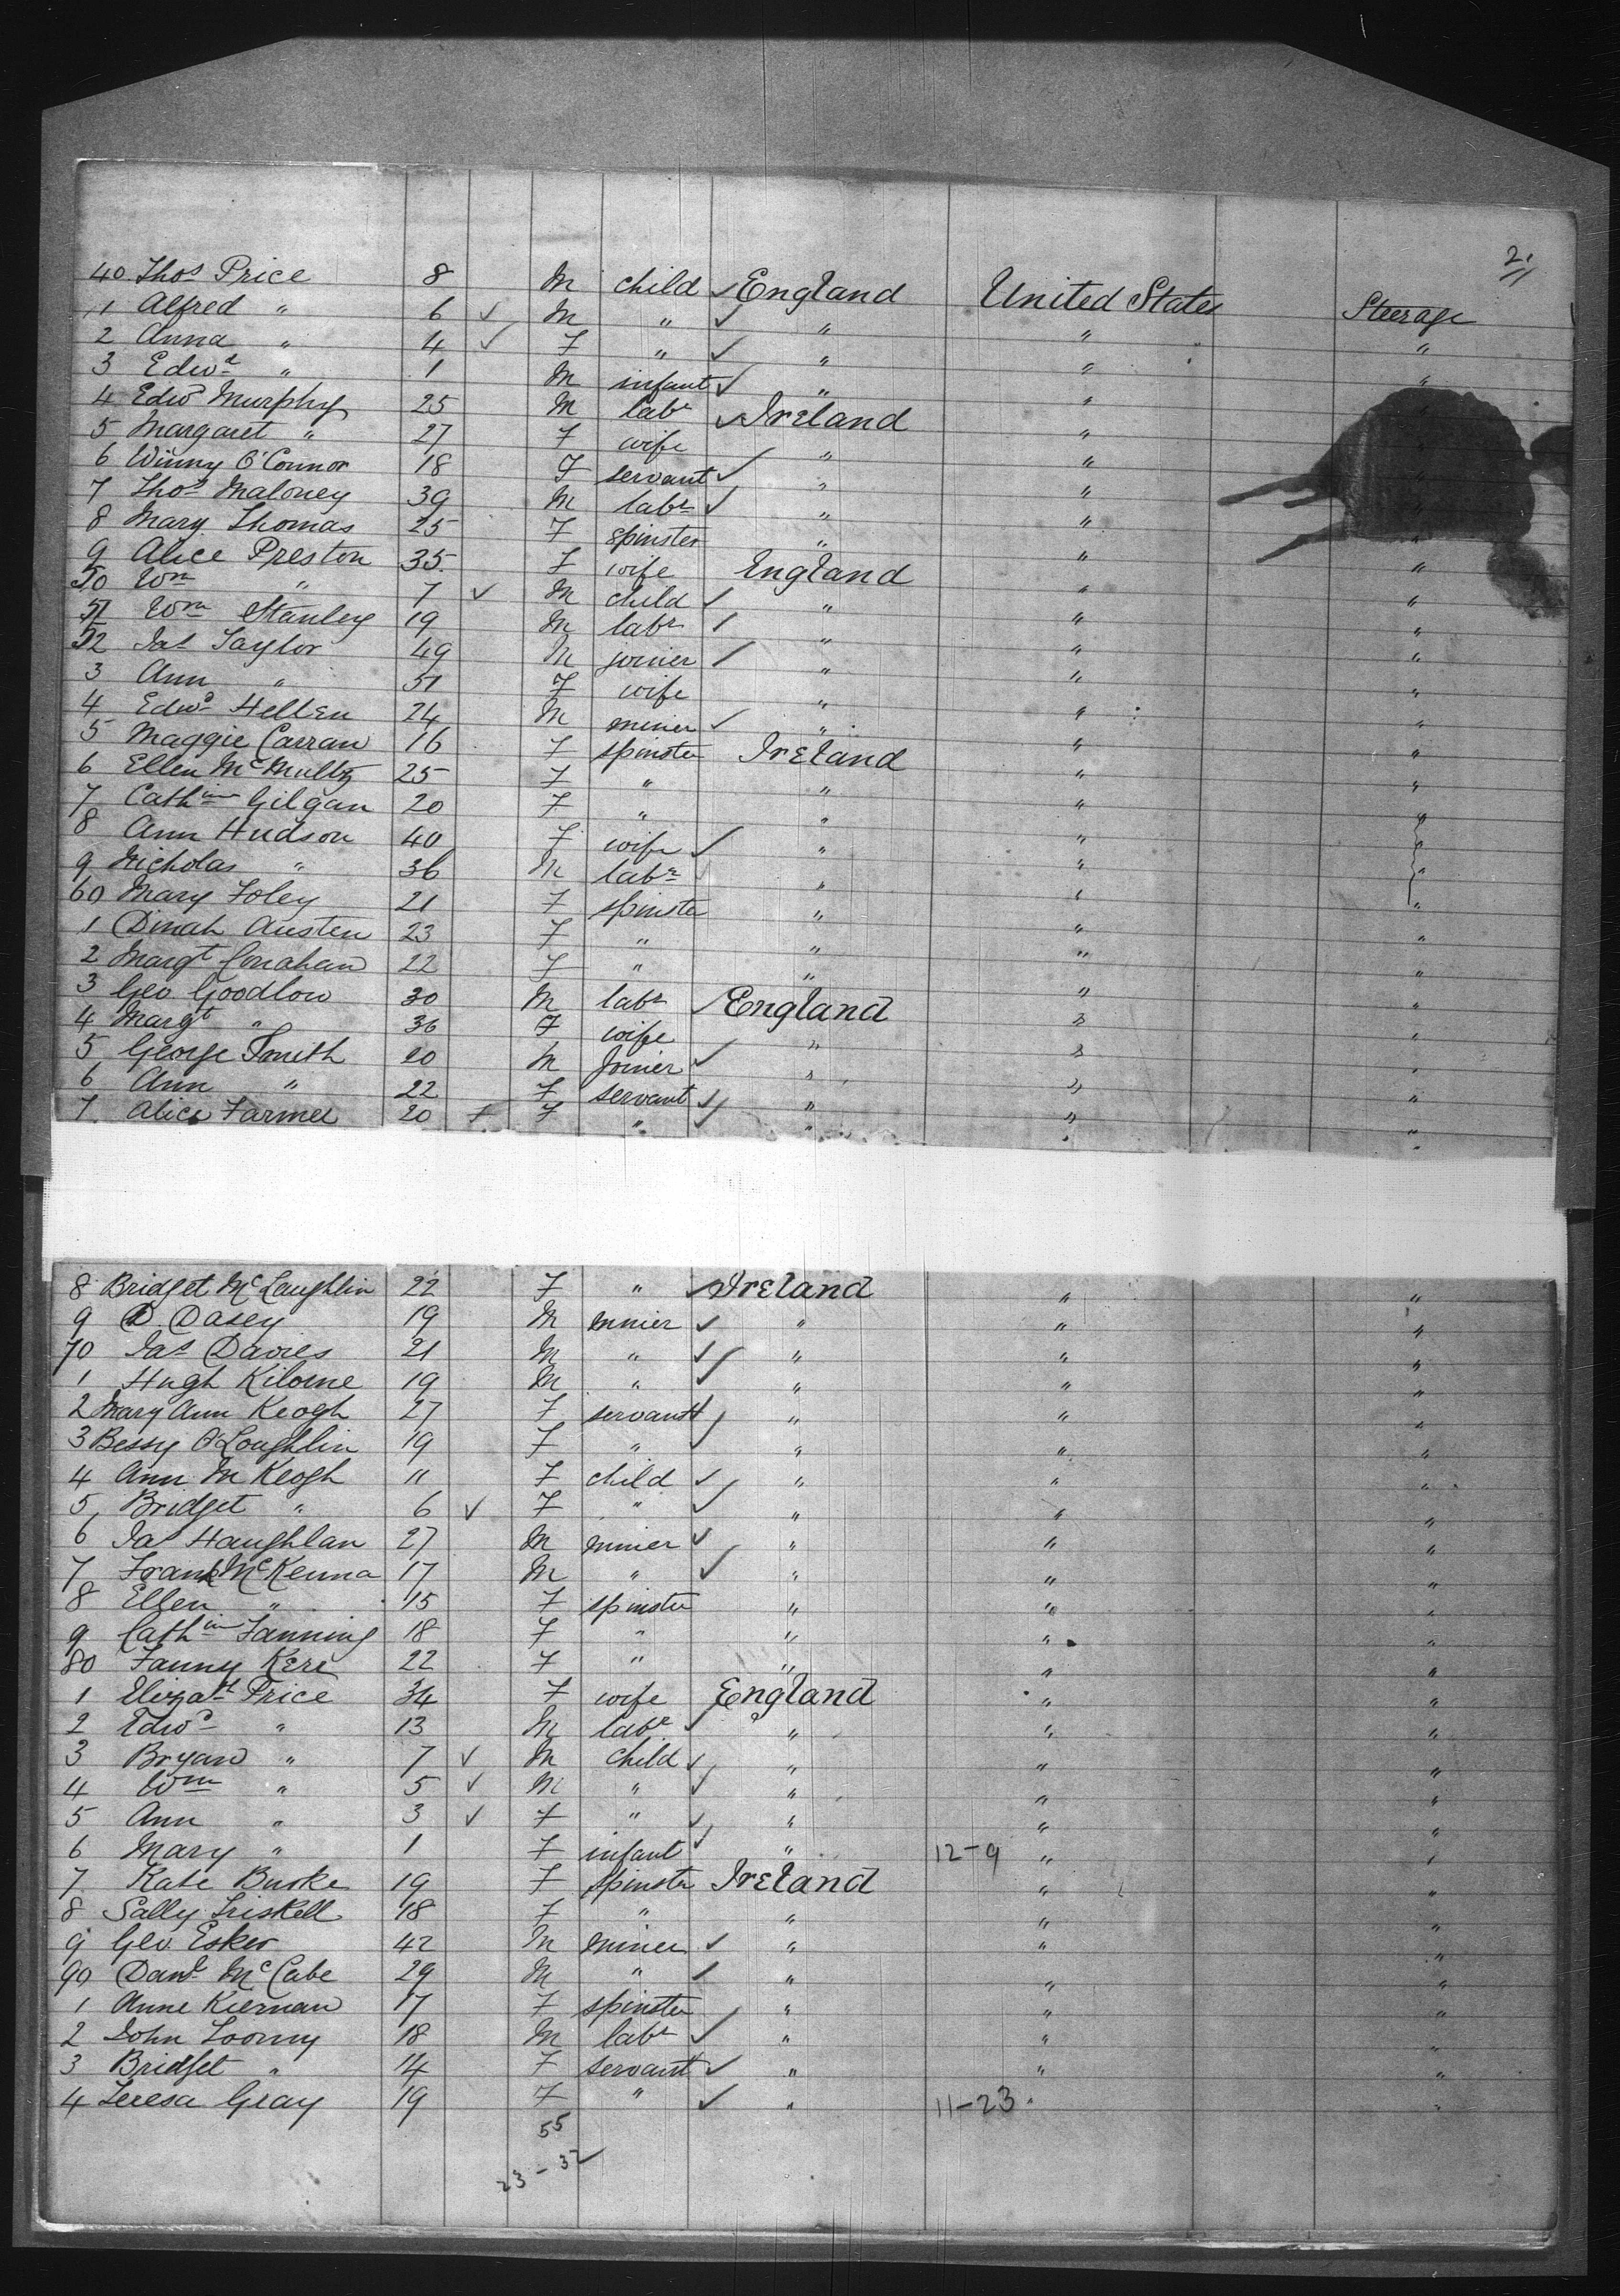 2/
40 Thos Price 8 M child ✓ England United States Steerage
1 Alfred " 6 ✓ M " ✓ " " "
2 Anna " 4 ✓ F " ✓ " " "
3 Edwd " 1 M infant ✓ " "
4 Edwd Murphy 25 M labr ✓ Ireland "
5 Margaret " 27 F wife " "
6 Winny O'Connor 18 F servant ✓ " "
7 Thos Maloney 39 M labr ✓ " "
8 Mary Thomas 25 F spinster " " "
9 Alice Preston 35 F wife England " "
50 Wm " 7 ✓ M child ✓ " " "
51 Wm Stanley 19 M labr ✓ " " "
52 Jas Taylor 49 M joiner ✓ " " "
3 Ann " 51 F wife " " "
4 Edwd Hellen 24 M miner ✓ " " "
5 Maggie Carran 16 F spinster Ireland " "
6 Ellen McMulty 25 F " " " "
7 Cathine Gilgan 20 F " " " "
8 Ann Hudson 40 F wife ✓ " " "
9 Nicholas " 36 M labr " " "
60 Mary Foley 21 F spinster " " "
1 Dinah Austen 23 F " " " "
2 Margt Conahan 22 F " " " "
3 Geo Goodlow 30 M labr ✓ England " "
4 Margt " 36 F wife " " "
5 George Smith 20 M Joiner ✓ " " "
6 Ann " 22 F servant ✓ " " "
7 Alice Farmer 20 F " ✓ " " "
8 Bridget McLaughlin 22 F " ✓ Ireland " "
9 D. Dasey 19 M miner ✓ " " "
70 Jas Davies 21 M " ✓ " " "
1 Hugh Kilome 19 M " ✓ " " "
2 Mary Ann Keogh 27 F servant ✓ " " "
3 Bessy O'Loughlin 19 F " ✓ " " "
4 Ann M Keogh 11 F child ✓ " " "
5 Bridget " 6 ✓ F " ✓ " " "
6 Jas Haughlan 27 M miner ✓ " " "
7 Frank McKenna 17 M " ✓ " " "
8 Ellen " 15 F spinster " " "
9 Cathine Fanning 18 F " " " "
80 Fanny Kerr 22 F " " " "
1 Elizath Price 34 F wife England " "
2 Edwd " 13 M labr ✓ " " "
3 Bryan " 7 ✓ M child ✓ " " "
4 Wm " 5 ✓ M " ✓ " " "
5 Ann " 3 ✓ F " ✓ " " "
6 Mary " 1 F infant ✓ " 12-9 " "
7 Kate Burke 19 F spinster Ireland " "
8 Sally Triskell 18 F " " " "
9 Geo. Esker 42 M miner ✓ " " "
90 Danl McCabe 29 M " ✓ " " "
1 Anne Kiernan 17 F spinster " " "
2 John Loomy 18 M labr ✓ " " "
3 Bridget " 14 F servant ✓ " " "
4 Teresa Gray 19 F " ✓ " 11-23 " "
55
23-32